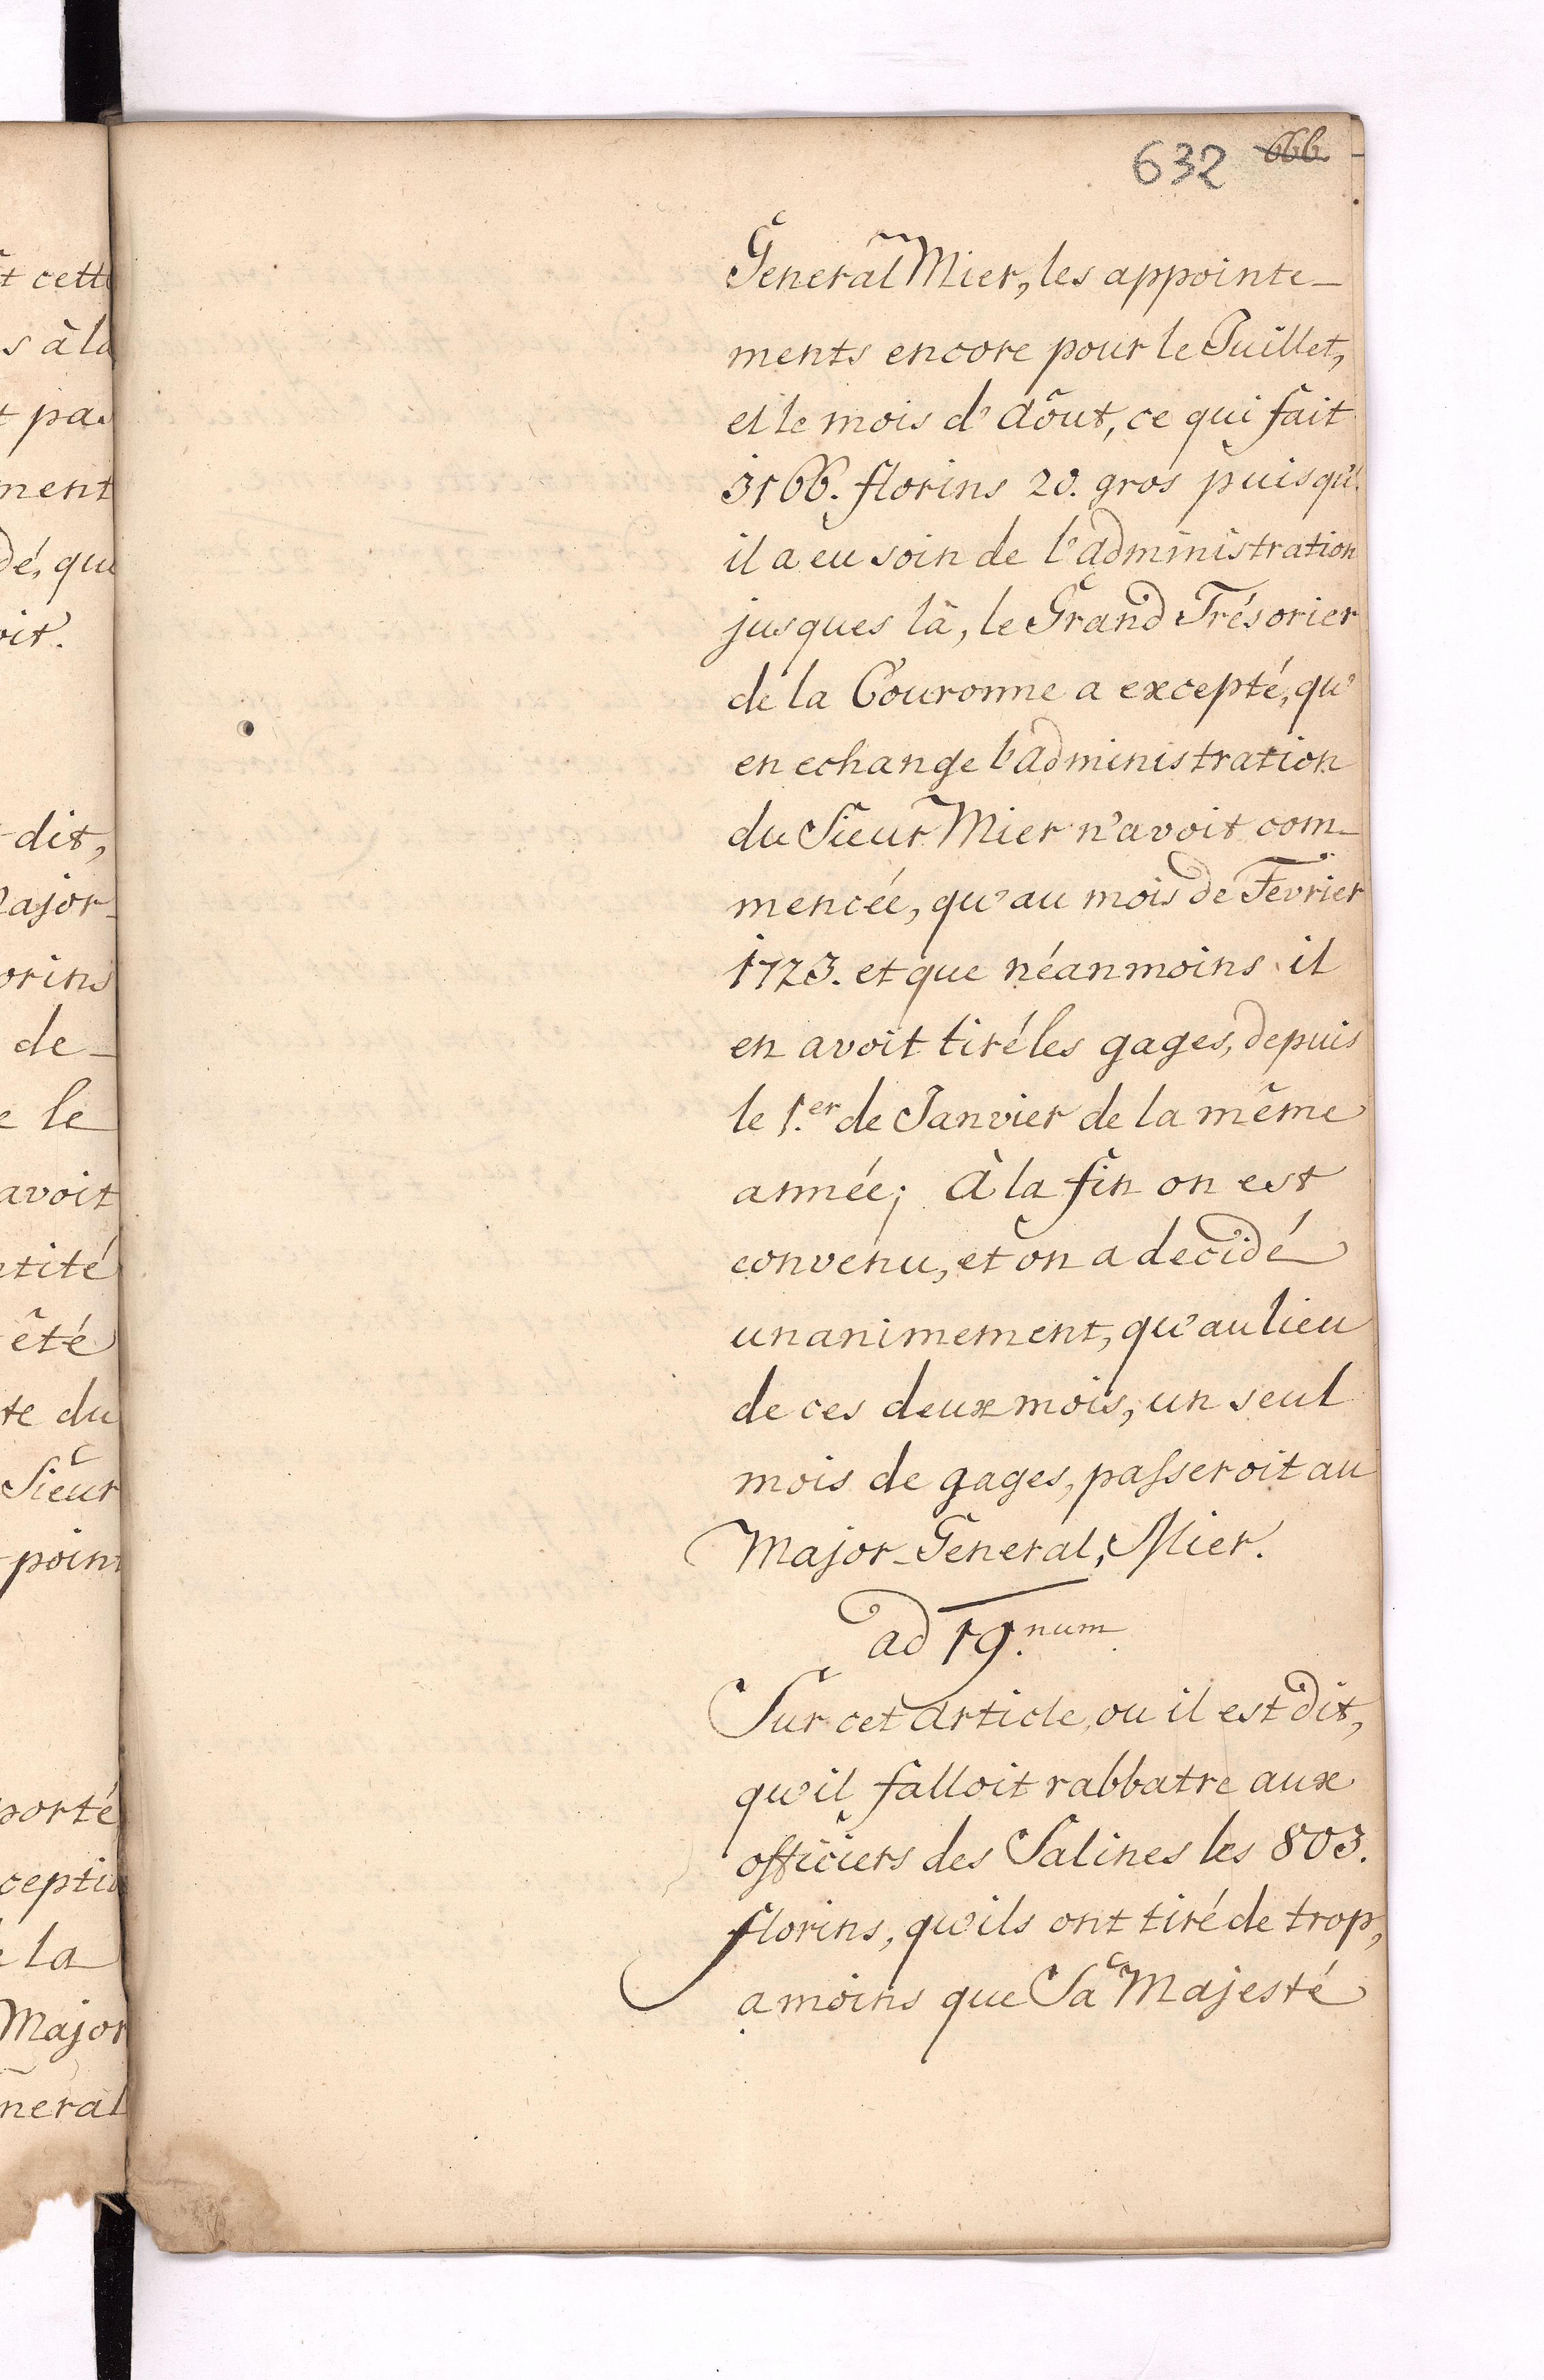 t cette
s à la
t pas
ment
dé, que
oit.
dit,
Major-
orins
de-
e le
avoit
ntité
êté
te du
Sieur
point
porté
ceptio
la
Major
neral
632 666.
General Mier, les appointe-
ments encore pour le Juillet,
et le mois d'Aôut, ce qui fait
3166. florins 20. gros puisqu'
il a eu soin de l'administration
jusques là, le Grand Trésorier
de la Couronne a excepté, qu'
en echange l'administration
du Sieur Mier n'avoit com-
mencée, qu'au mois de Fevrier
1723. et que néanmoins il
en avoit tiré les gages, depuis
le 1.er de Janvier de la même
année; à la fin on est
convenu, et on a decidé
unanimement, qu'au lieu
de ces deux mois, un seul
mois de gages, passeroit au
Major-General, Mier.
ad 19.num
Sur cet article, ou il est dit,
qu'il falloit rabbatre aux
officiers des Salines les 803.
florins, qu'ils ont tiré de trop,
a moins que Sa Majesté